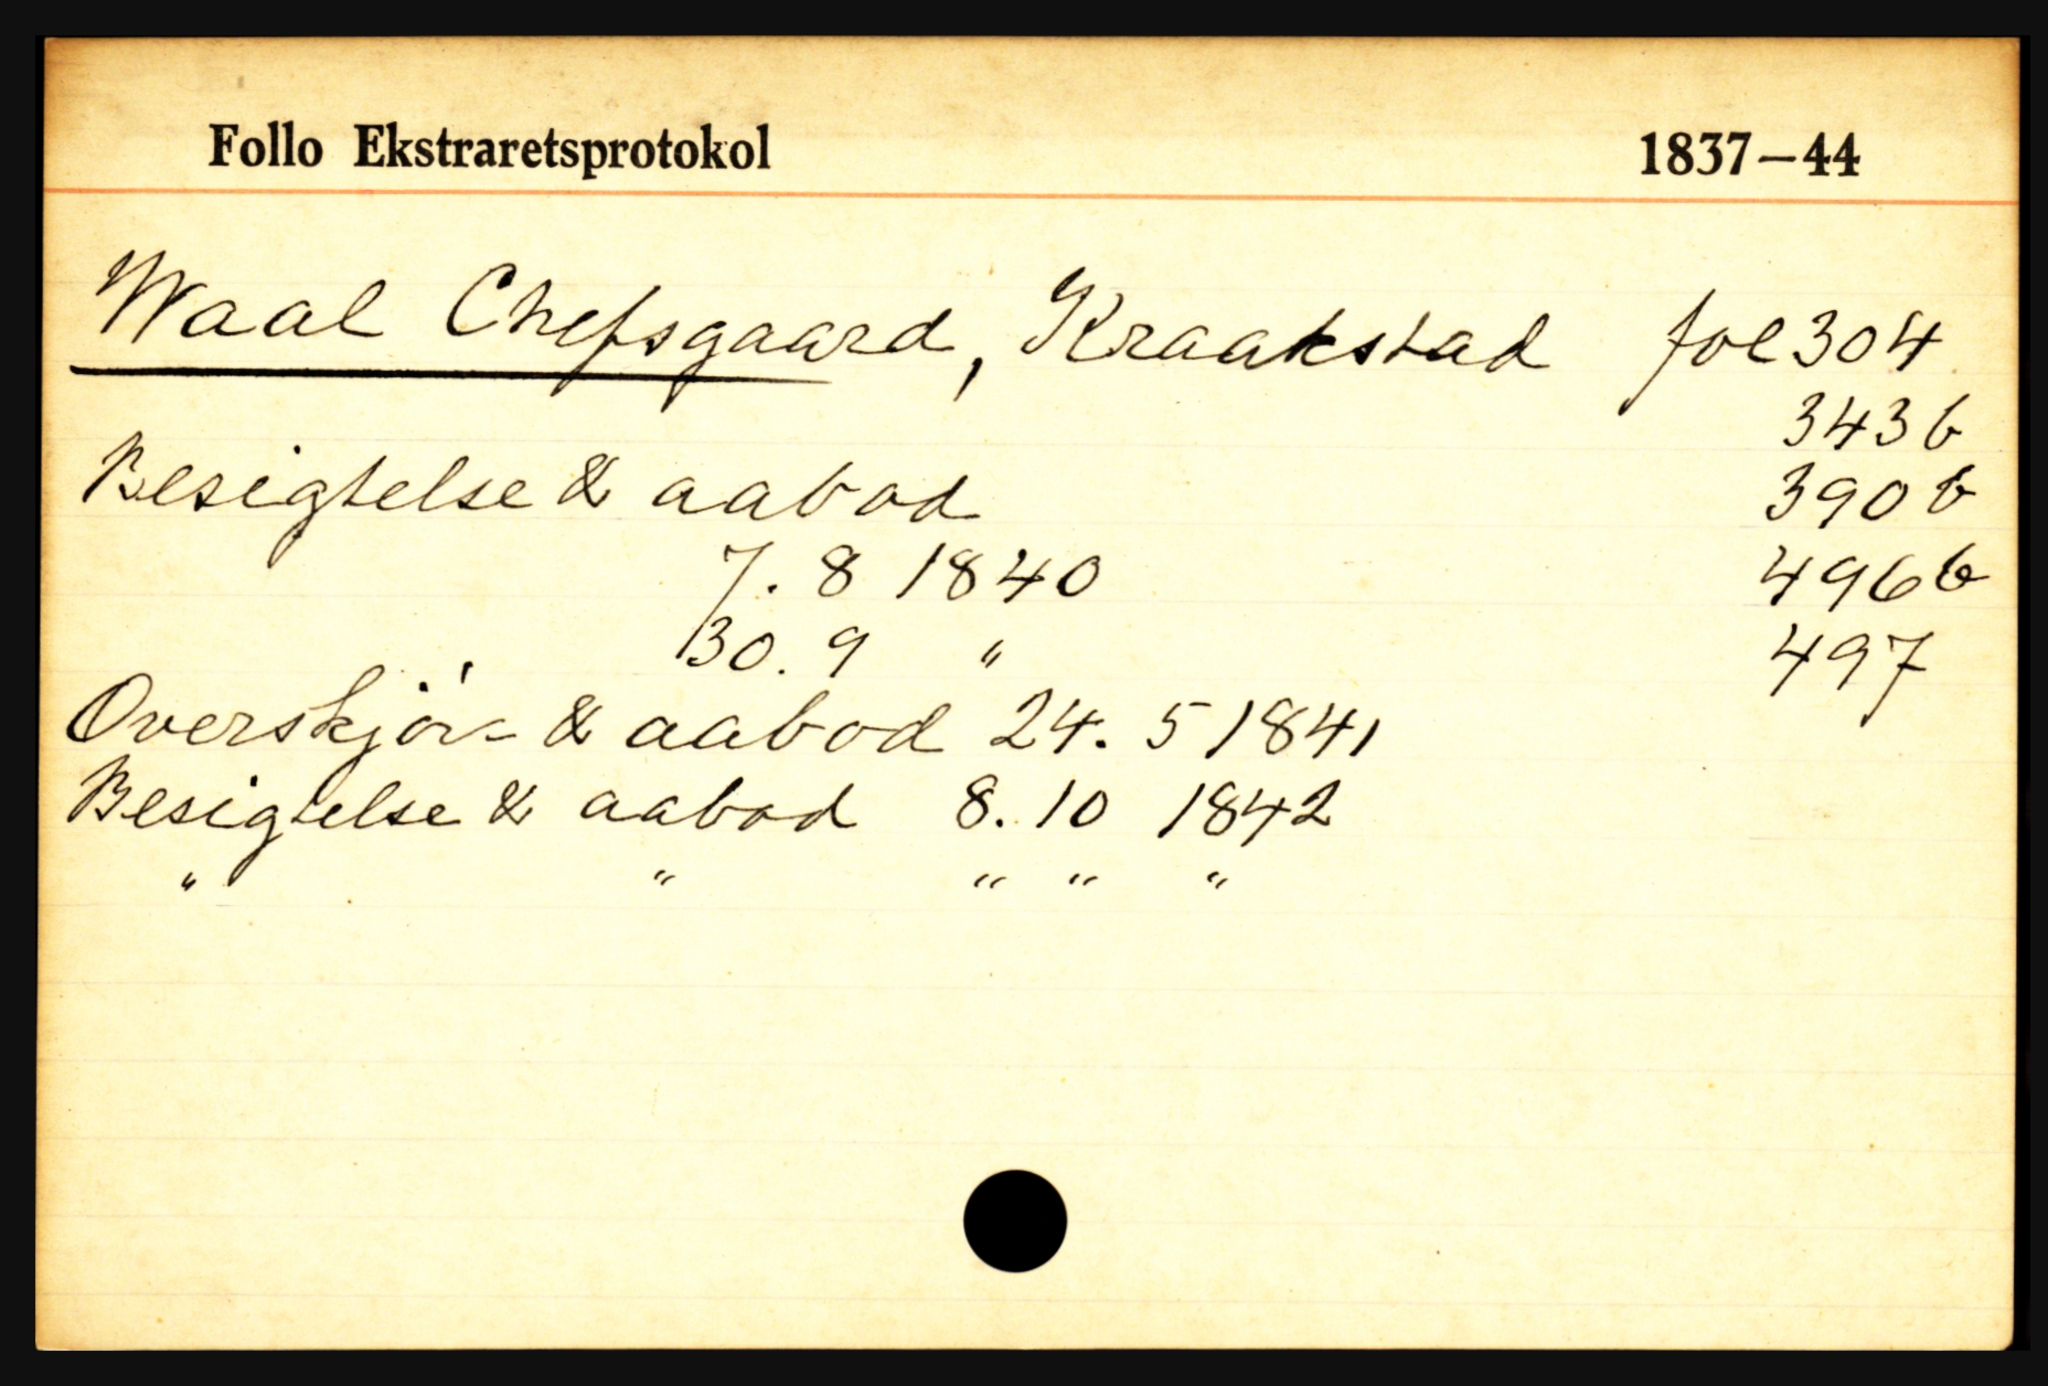 Follo Ekstraretsprotokol 1837–44
Waal Chefsgaard, Kraakstad fol 304
343 b
Besigtelse & aabod 390 b
7. 8 1840 496 b
30. 9 " 497
Overskjøn & aabod 24. 5 1841
Besigtelse & aabod 8. 10 1842
" " " " "